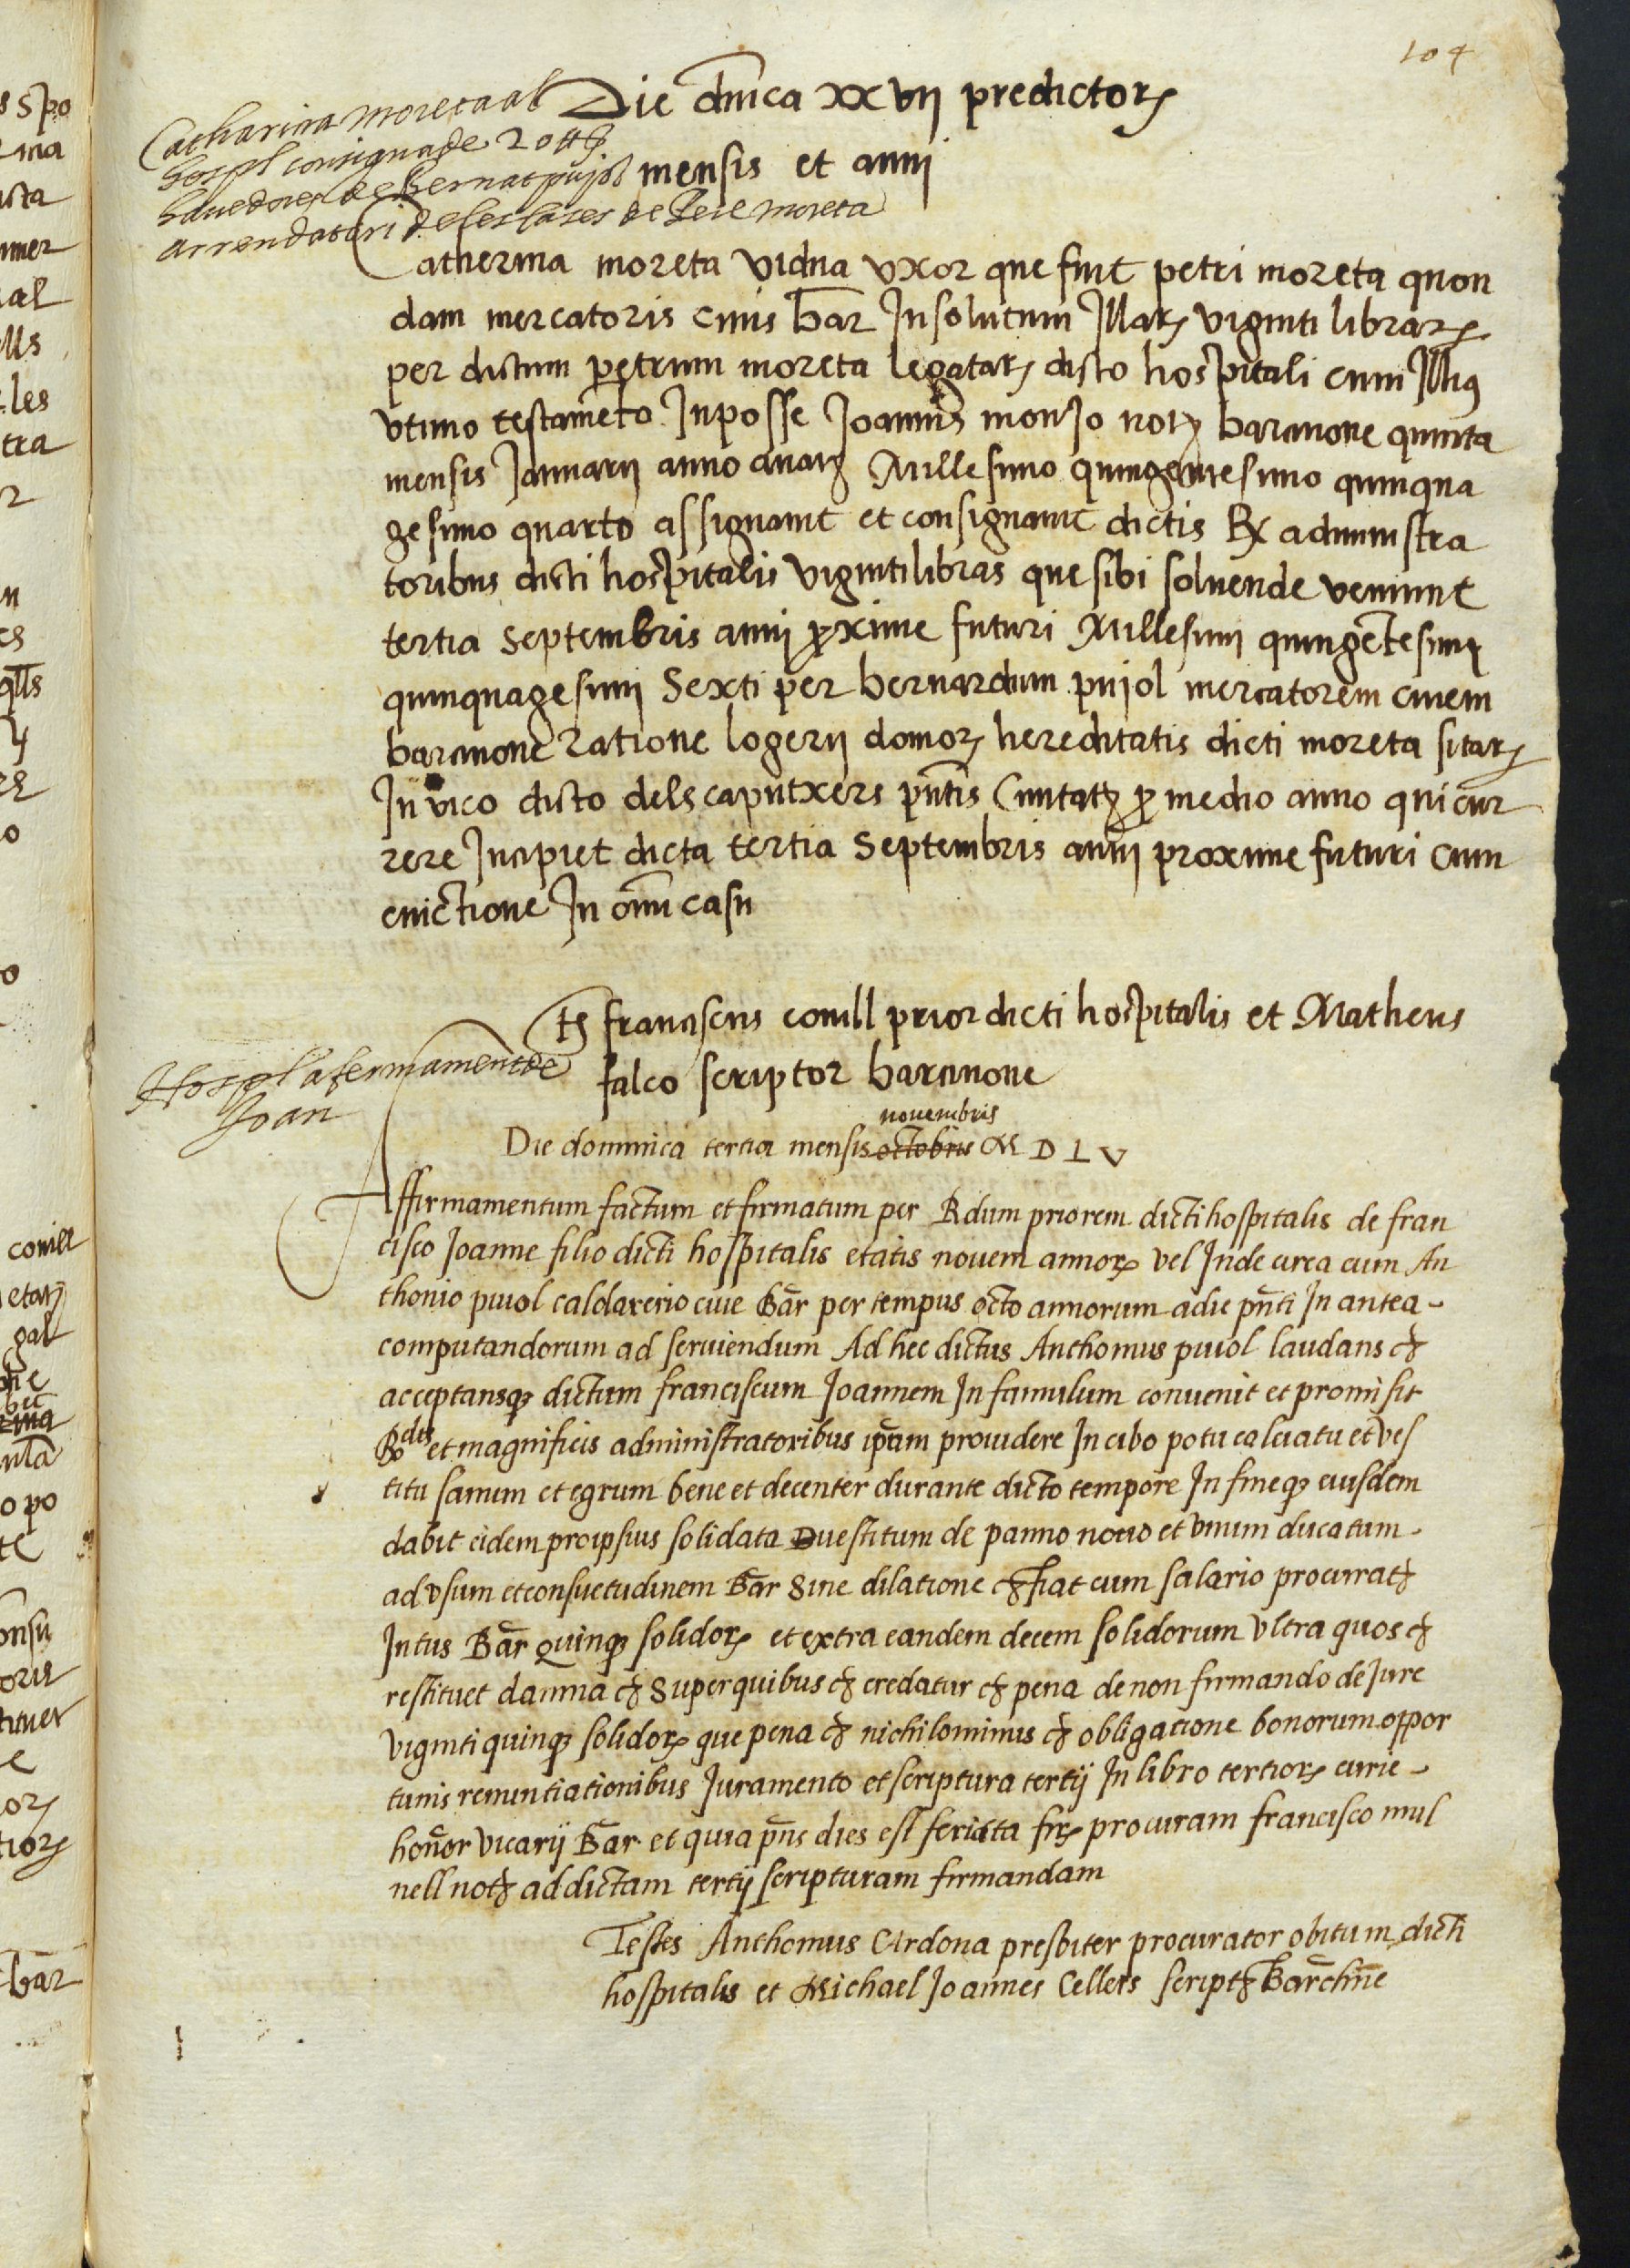 104
Die dnica xxvij predictorꝝ
mensis et anni
Catharina moreta al
hospl consigna de 20 ₶
havedores de Bernat pujol
arrendatari de les cases de Pere moreta
Catherina moreta vidua uxor que fuit petri moreta quon
dam mercatoris civis bar In solutum Illarꝝ viginti librarꝝ
per dictum petrum moreta legatarꝝ dicto hospitali cum Illius
utimo testameto Inposse Joannis monjo notꝝ barcinone quinta
mensis Januarij anno anatꝫ Millesimo quingentesimo quinqua
gesimo quarto assignavit et consignavit dictis Rx administra
toribus dicti hospitalis vigintilibras que sibi solvende veniunt
tertia Septembris anni proxime futuri Millesimi quingetesimi
quinquagesimi Sexti per bernardum pujol mercatorem civem
barcinone Ratione logerij domorꝝ hereditatis dicti moreta sitarꝝ
In vico dicto dels caputxers pntis Civitatꝫ ꝓ medio anno qui cur
rere Incipiet dicta tertia Septembris anni proxime futuri cum
evictione In omi casu
Ts franciscus conill prior dicti hospitalis et Matheus
falco scriptor barcinone
Hospl afermament de
Joan
novembris
Die dominica tertia mensis octobris M D L V
Affirmamentum factum et firmatum per Rdum priorem dicti hospitalis de fran
cisco Joanne filio dicti hospitalis etatis novem annorꝝ vel Inde circa cum An
thonio puiol caldererio cive Bar per tempus octo annorum adie pnti In antea -
computandorum ad serviendum Ad hec dictus Anthonius puiol laudans ⁊c
acceptansqꝫ dictum franciscum Joannem In famulum convenit et promisit
Rdis et magnificis administratoribus ipsum providere In cibo potu calciatu et ves
titu sanum et egrum bene et decenter durante dicto tempore In fineqꝫ eiusdem
dabit eidem proipsius solidata vestitum de panno novo et unum ducatum -
ad usum et consuetudinem Bar Sine dilatione ⁊c fiat cum salario procuratꝫ
Intus Bar Quinqꝫ solidorꝝ et extra eandem decem solidorum Ultra quos ⁊c
restituet damna ⁊c Super quibus ⁊c credatur ⁊c pena de non firmando de Jure
viginti quinqꝫ solidorꝝ que pena ⁊c nichilominus ⁊c obligatione bonorum oppor
tunis renuntiationibus Juramento et scriptura tertij In libro tertiorꝝ curie -
honor vicarij Bar et quia pns dies est feriata procuram francisco mul
nell notꝫ ad dictam tertij scripturam firmandam
Testes Anthonius Cardona presbiter procurator obituum dicti
hospitalis et Michael Joannes Cellers scriptꝫ Barchne